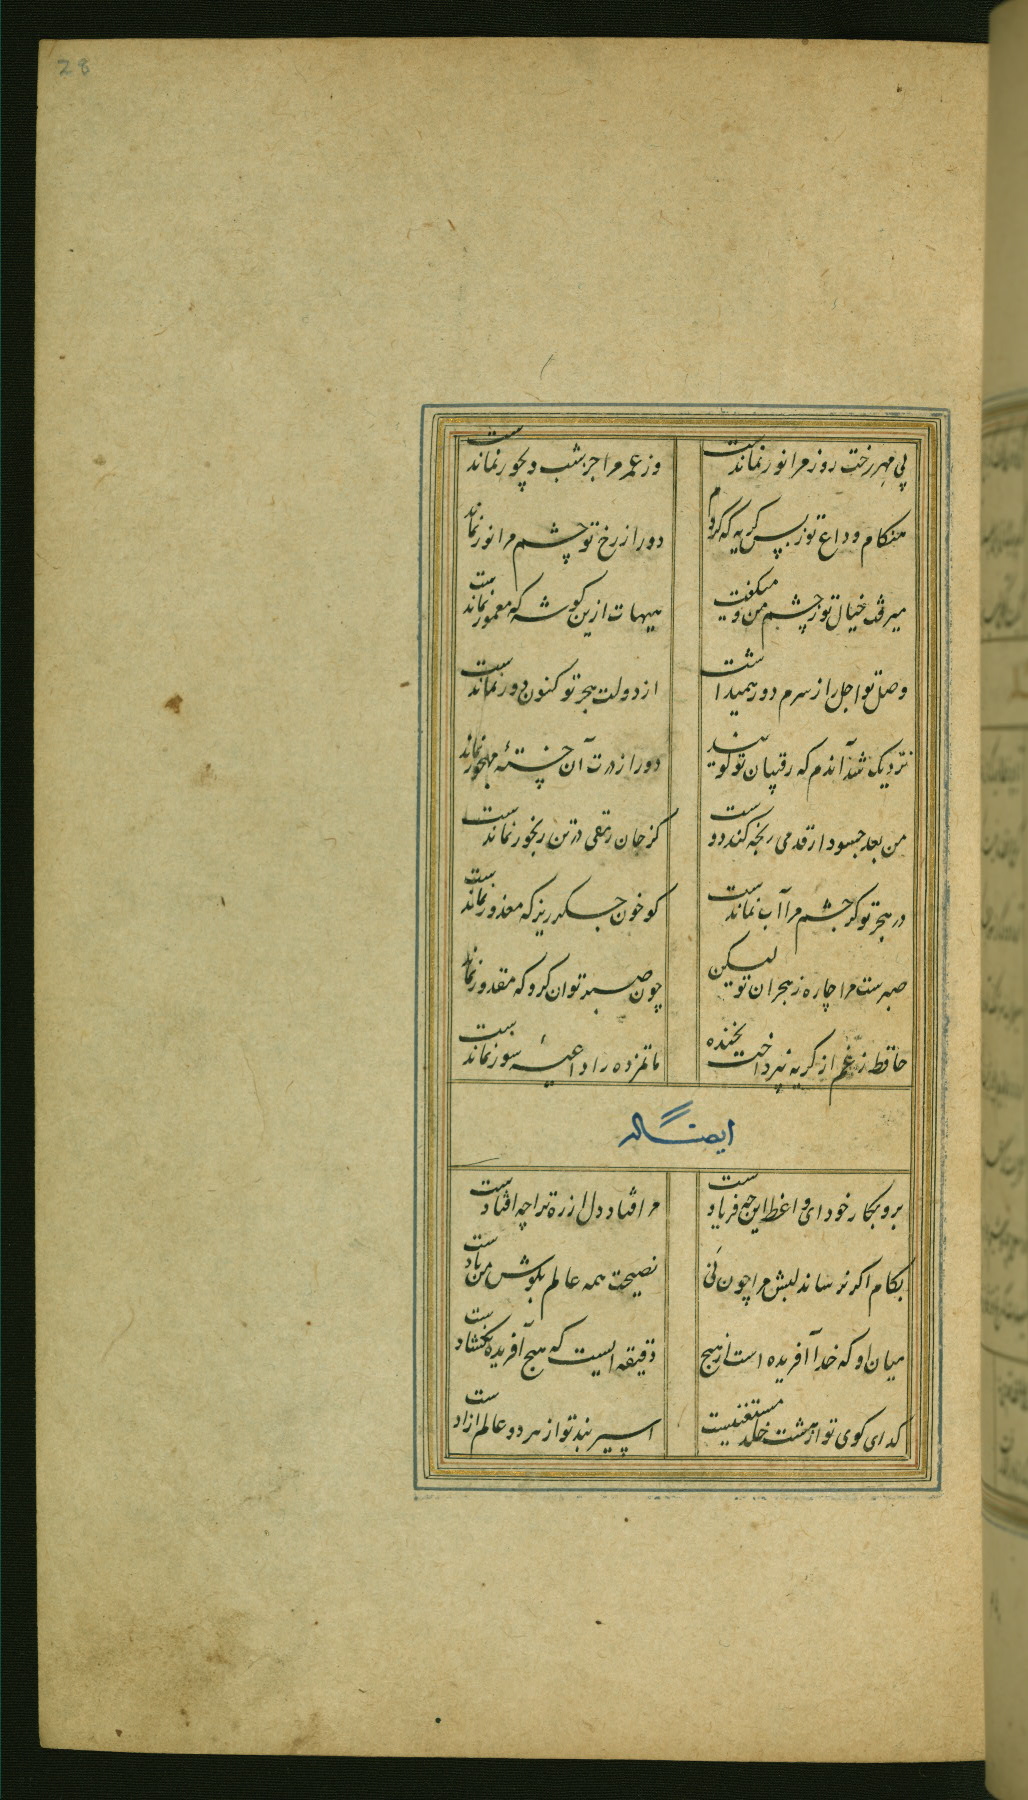 28
بی مهر رخت روز مرا نور نماندست
وز عمر مرا جز شب دیجور نماندست
هنگام وداع تو ز بس گریه که کردم
دور از رخ تو چشم مرا نور نماند
میرفت خیال تو ز چشم من و میگفت
هیهات ازین گوشه که معمور نماندست
وصل تو اجل را ز سرم دور همیداشت
از دولت هجر تو کنون دور نماندست
نزدیک شد آندم که رقیبان تو گویند
دور از درت آن خستهٔ مهجور نماند
من بعد چسود ار قدمی رنجه کند دوست
کز جان رمقی در تن رنجور نماندست
در هجر تو گر چشم مرا آب نماندست
گو خون جگر ریز که معذور نماندست
صبرست مرا چاره ز هجران تو لیکن
چون صبر توان کرد که مقدور نماند
حافظ ز غم از گریه نپرداخت بخنده
ماتمزده را داعیهٔ سور نماندست
ایضاً له
برو بکار خود ای واعظ این چه فریادست
مرا فتاد دل از ره ترا چه افتادست
بکام اگر نرساند لبش مرا چون نی
نصیحت همه عالم بگوش من بادست
میان او که خدا آفریده است از هیچ
دقیقه ایست که هیچ آفریده نگشادست
گدای کوی تو از هشت خلد مستغنیست
اسیر بند تو از هر دو عالم ازادست